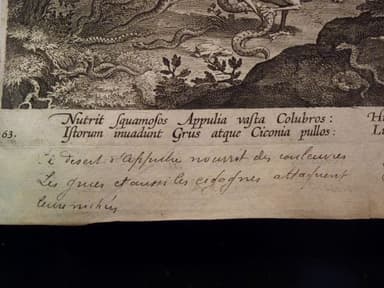 Nutrit squamosos Appulia vasta Colubros: H
63. Istorum invadunt Grus atque Ciconia pullos: L
Le desert d'Appulie nourrit des couleuvres
Les grues et aussi les cigognes attaquent
leurs nichées